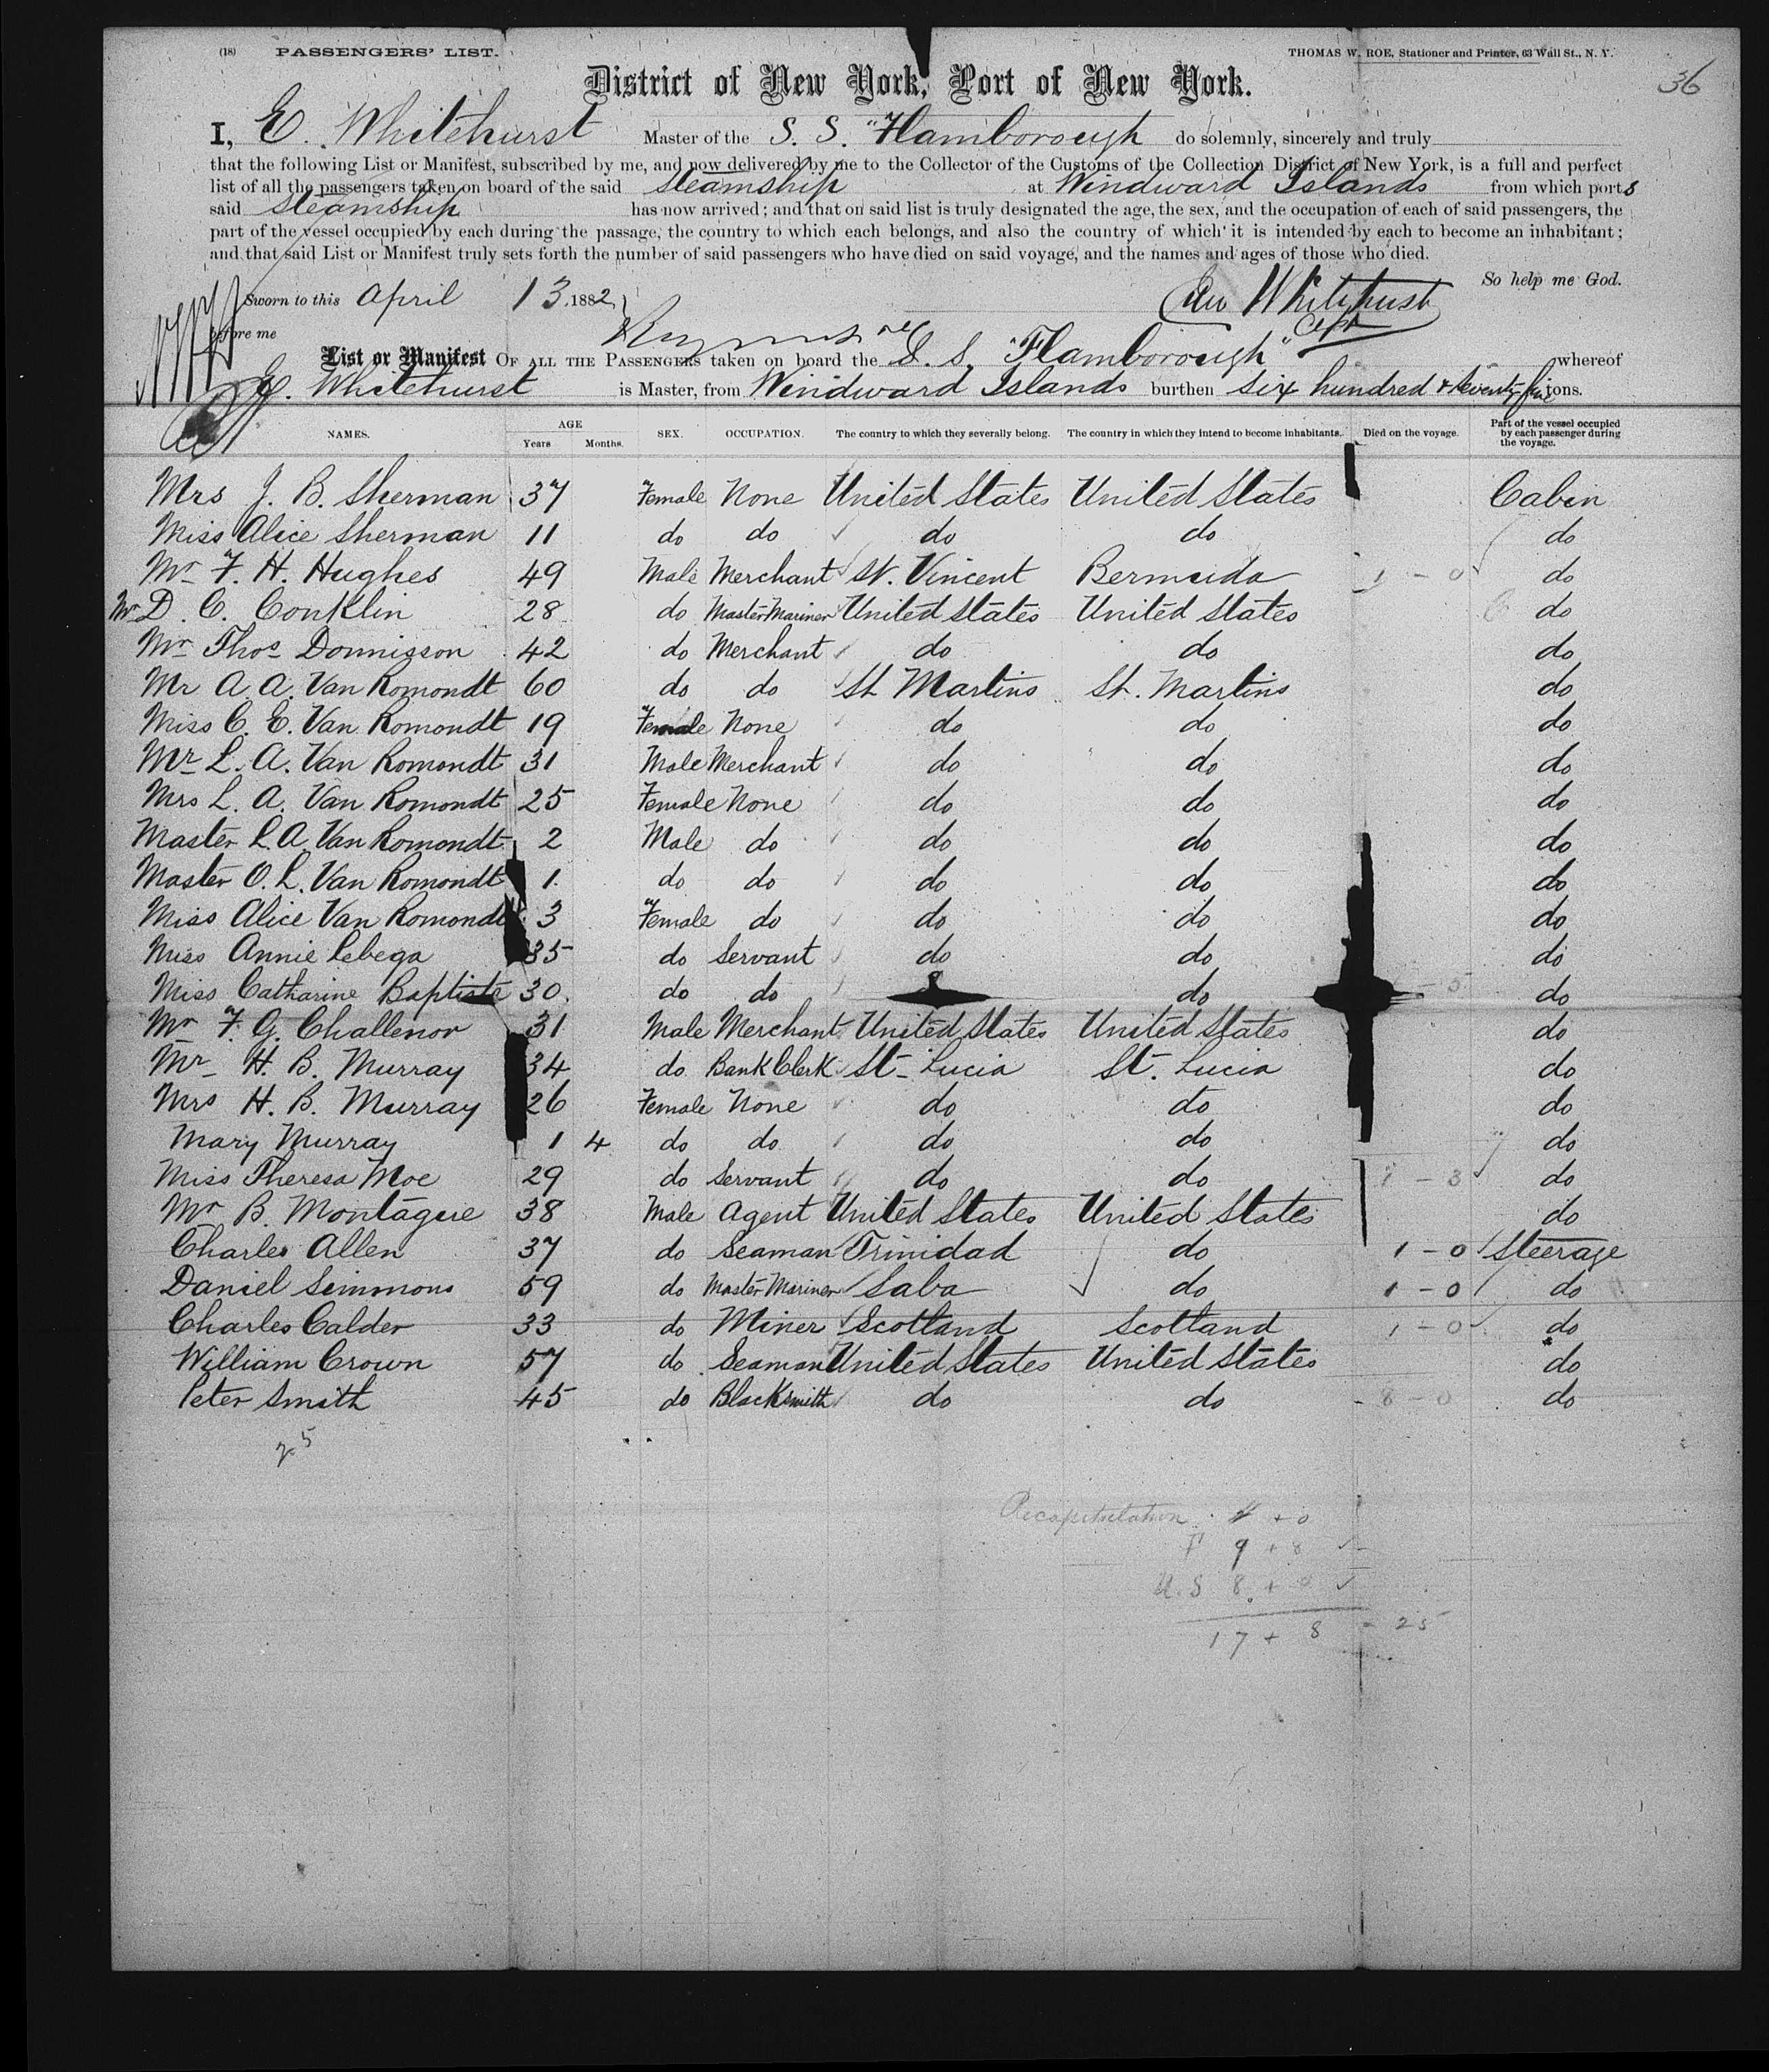 (18) PASSENGERS' LIST. THOMAS W. ROE, Stationer and Printer, 63 Wall St., N. Y.
36
District of New York, Port of New York.
I, E. Whitehurst Master of the S. S. "Flamborough do solemnly, sincerely and truly
that the following List or Manifest, subscribed by me, and now delivered by me to the Collector of the Customs of the Collection District of New York, is a full and perfect
list of all the passengers taken on board of the said Steamship at Windward Islands from which ports
said Steamship has now arrived; and that on said list is truly designated the age, the sex, and the occupation of each of said passengers, the
part of the vessel occupied by each during the passage, the country to which each belongs, and also the country of which it is intended by each to become an inhabitant;
and that said List or Manifest truly sets forth the number of said passengers who have died on said voyage, and the names and ages of those who died.
So help me God.
Sworn to this April 13. 1882, Whitehurst
before me Capt
List or Manifest OF ALL THE PASSENGERS taken on board the S. S. "Flamborough" whereof
E. Whitehurst is Master, from Windward Islands burthen six hundred & seventy five tons.
NAMES. AGE Years Months. SEX. OCCUPATION. The country to which they severally belong. The country in which they intend to become inhabitants. Died on the voyage. Part of the vessel occupied by each passenger during the voyage.
Mrs J. B. Sherman 37 Female None United States United States Cabin
Miss Alice Sherman 11 do do do do do
Mr F. H. Hughes 49 Male Merchant St. Vincent Bermuda 1 - 0 do
Mr D. C. Conklin 28 do Master Mariner United States United States do
Mr Thos Donnisson 42 do Merchant do do do
Mr A. A. Van Romondt 60 do do St Martins St. Martins do
Miss C. E. Van Romondt 19 Female None do do do
Mr L. A. Van Romondt 31 Male Merchant do do do
Mrs L. A. Van Romondt 25 Female None do do do
Master L. A. Van Romondt 2 Male do do do do
Master O. L. Van Romondt 1 do do do do do
Miss Alice Van Romondt 3 Female do do do do
Miss Annie Lebega 35 do Servant do do do
Miss Catharine Baptiste 30 do do do - 5 do
Mr F. G. Challenor 31 Male Merchant United States United States do
Mr H. B. Murray 34 do Bank Clerk St. Lucia St. Lucia do
Mrs H. B. Murray 26 Female None do do do
Mary Murray 1 4 do do do do do
Miss Theresa Moe 29 do Servant do do 1 - 3 do
Mr B. Montague 38 Male Agent United States United States do
Charles Allen 37 do Seaman Trinidad do 1 - 0 Steerage
Daniel Simmons 59 do Master Mariner Saba do 1 - 0 do
Charles Calder 33 do Miner Scotland Scotland 1 - 0 do
William Crown 57 do Seaman United States United States do
Peter Smith 45 do Blacksmith do do 8 - 0 do
25
Recapitulation + 0
9 + 8
U.S 8 + 0
17 + 8 = 25